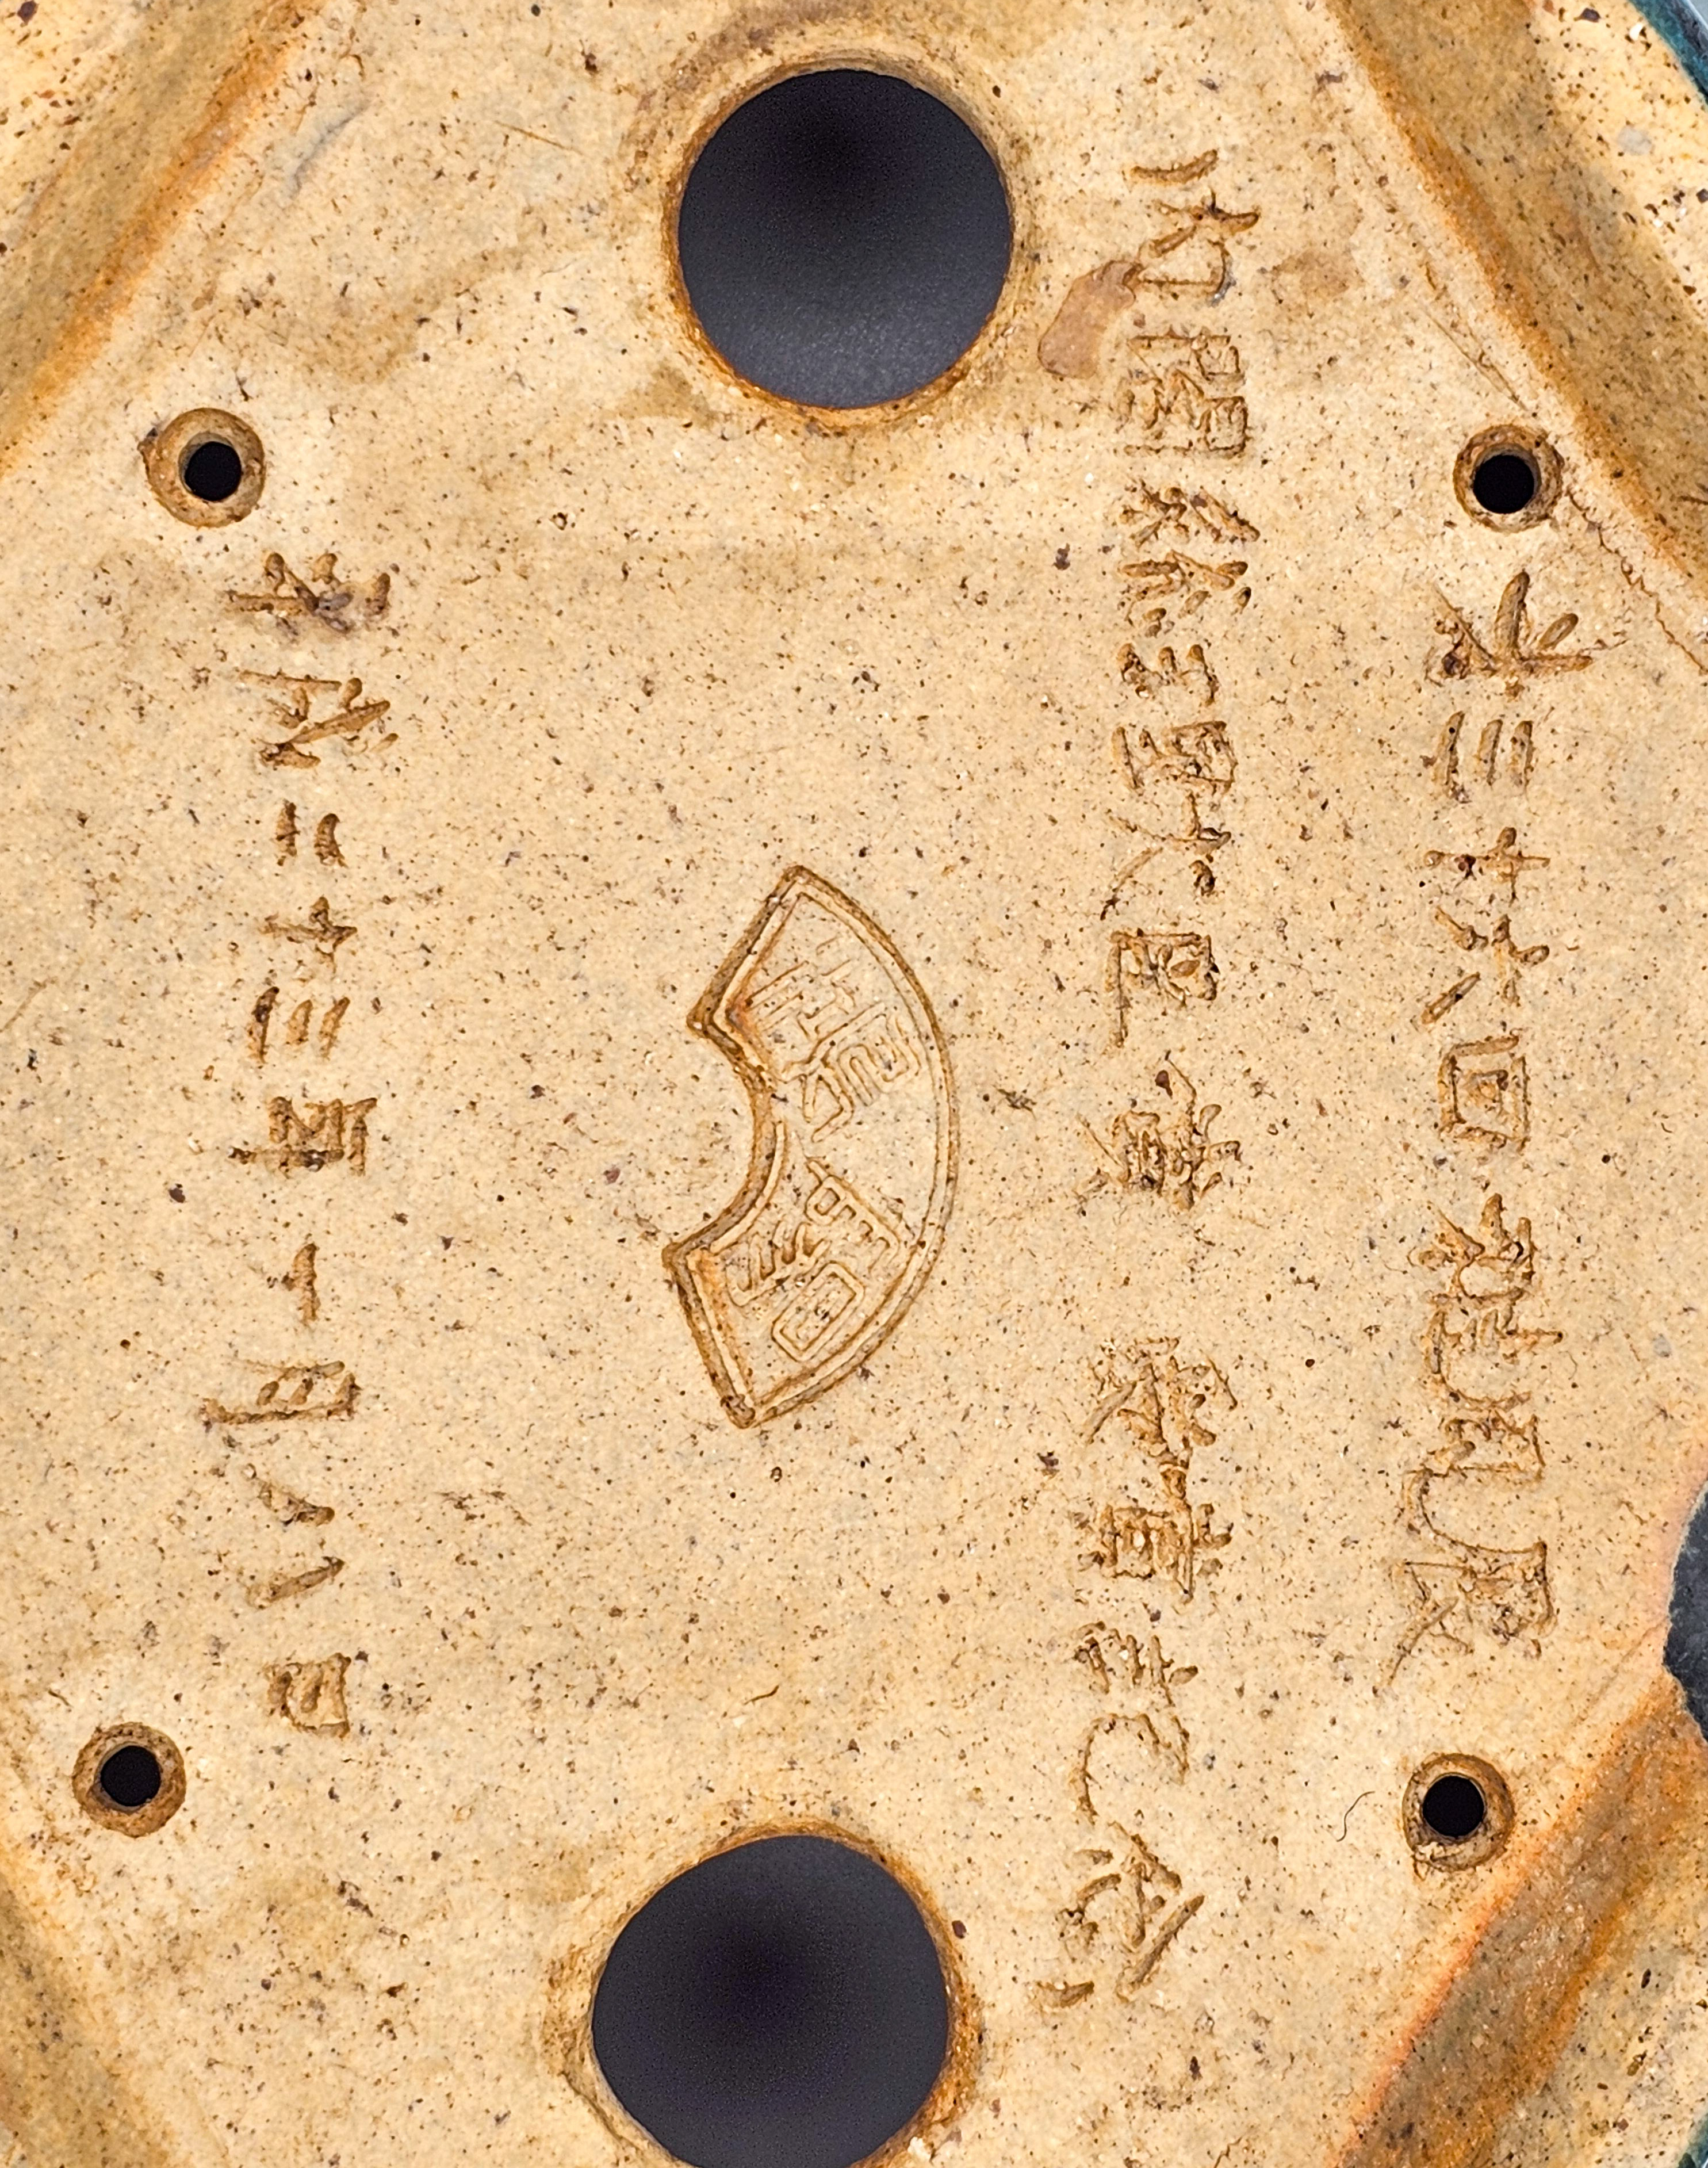 第三十六回雅風展
内閣総理大臣賞 受賞記念
平成二十三年一月八日